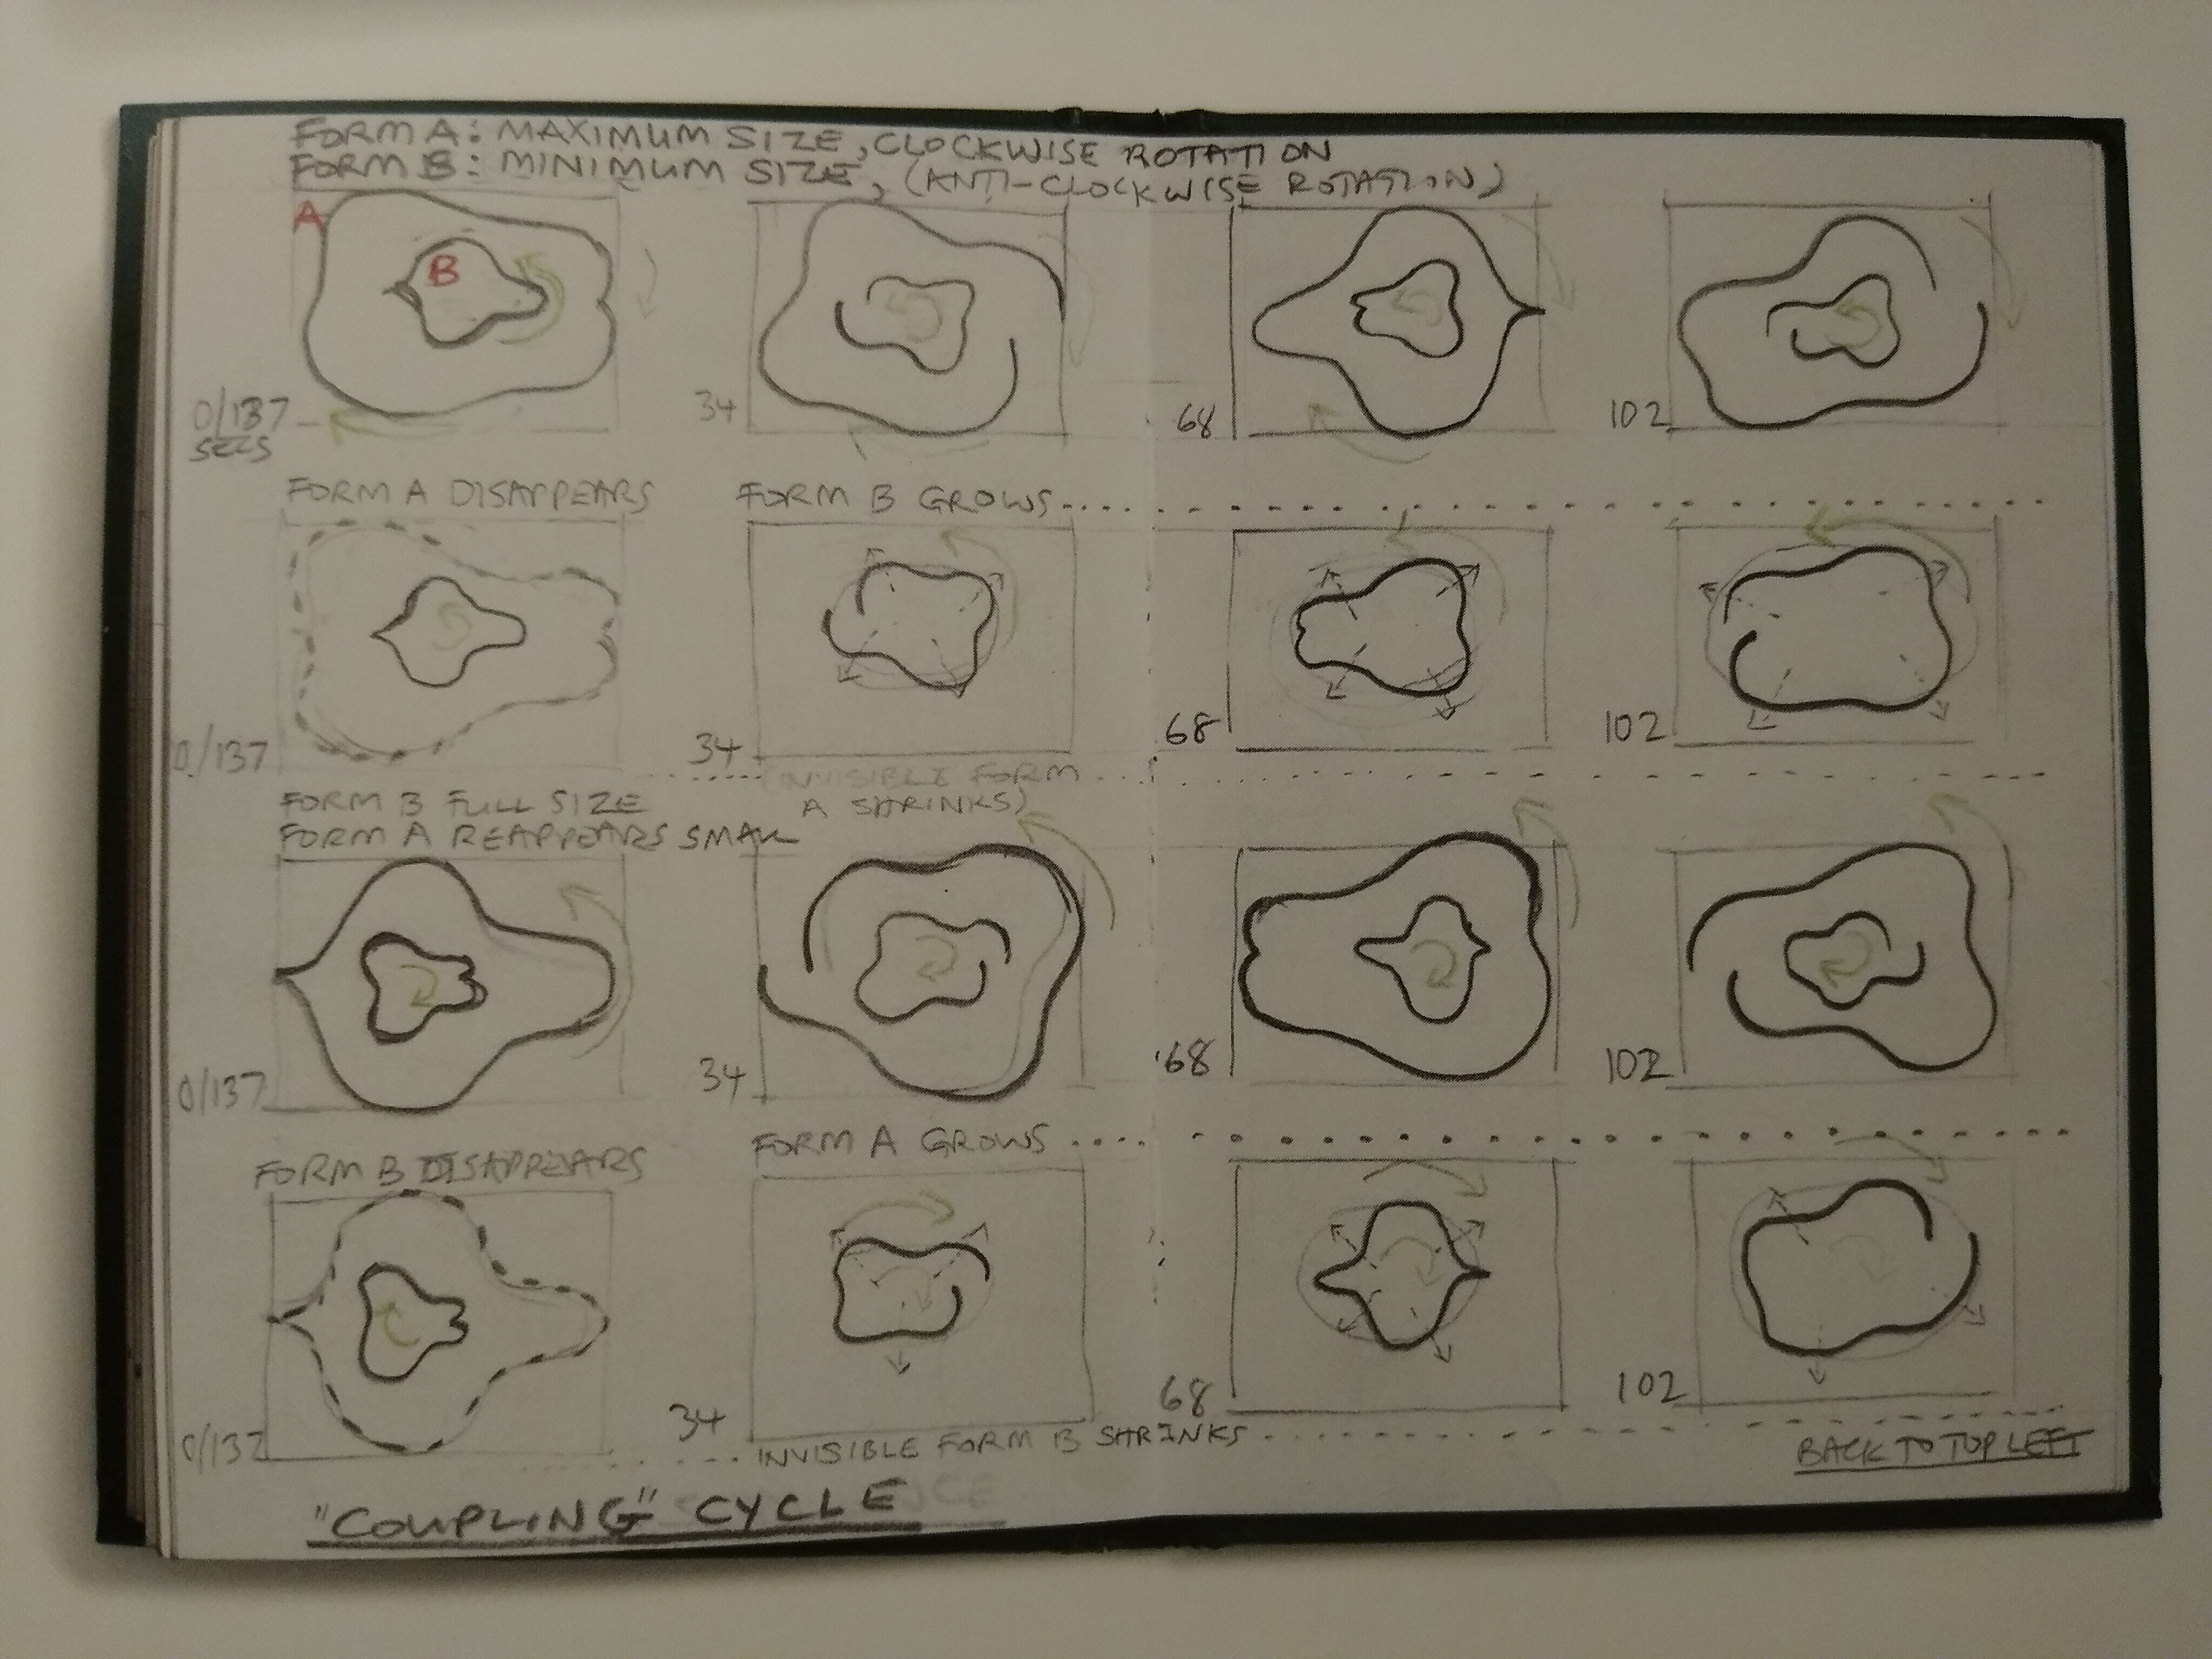 FORM A: MAXIMUM SIZE, CLOCKWISE ROTATION
FORM B: MINIMUM SIZE, (ANTI-CLOCKWISE ROTATION)
A
B
0/137
SECS
34
68
102
FORM A DISAPPEARS
FORM B GROWS
0/137
34
68
102
(INVISIBLE FORM
A SHRINKS)
FORM B FULL SIZE
FORM A REAPPEARS SMALL
0/137
34
68
102
FORM B DISAPPEARS
FORM A GROWS
0/137
34
68
102
INVISIBLE FORM B SHRINKS
BACK TO TOP LEFT
"COUPLING" CYCLE